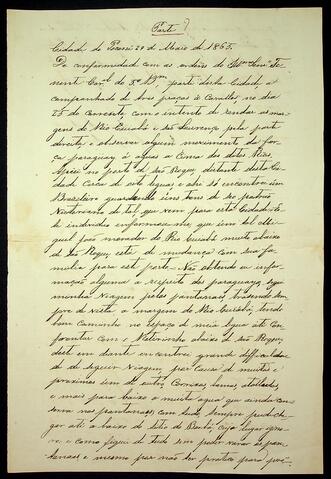 Parte
Cidade de Poconé 29 de Maio de 1865.
De conformidade com as ordens do Illmo Senr Te-
nent Corel do 5º parti desta Cidade, a
companhado de tres praças de Cavallos, no dia
25 do corrente, com o intento de rondar as mar-
gens do Rio Cuiabá e São Lourenço pela parte
direita, e observar algum movimento da for-
ça paraguay á agoas a Cima dos ditos Rios.
no porto de São Roque, distante desta Ci-
dade Cerca de oito legoas e ahi só encontrei um
Brasileiro guardando uns tons de seo patrão
de tal que vem para esta Cidade. Es-
te individuo enfermou me, que um tal
João morador do Rio Cuiabá muito abaixo
de São Roque, está de mudança com sua fa-
milia para esta parte. Não obtendo eu enfor-
mação alguma a respeito dos paraguayos, segui
minha viagem pelas pantanaes, trazendo sem-
pre de vista a margem do Rio Cuiabá, tendo
bom caminho no espaço de meia legoa até Con-
frontar com o abaixo de São Roque,
deste em diante encontrei grande difficuldade
de seguir viagem, por causa de muitos e
proximos um do outro Corixos, lamas, atollados,
e mais para baixo a muita agoa que ainda con-
serva nos pantanaes, com tudo sempre pude che-
gar até a baixo do Sitio do cujo lugar igno-
ro, e como fiquei de tudo sem poder varar os pan-
tanaes e mesmo por não ser pratico para